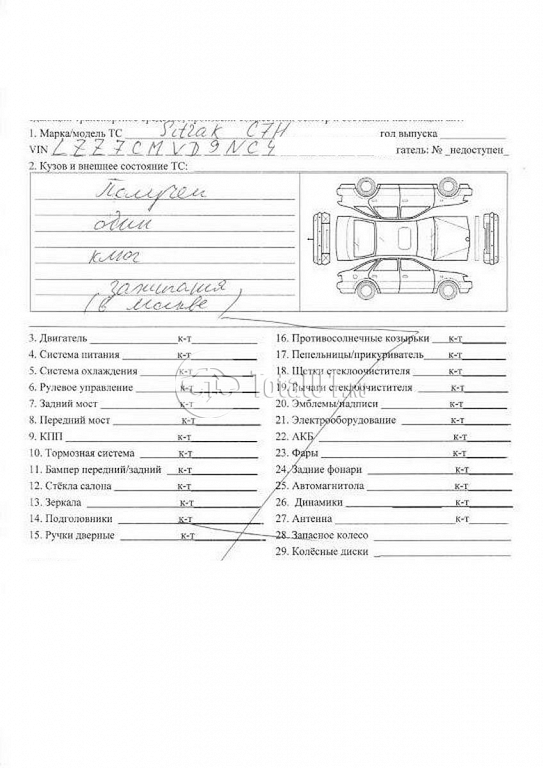 1. Марка/модель ТС Sitrak C7H гол выпуска
VIN LZZ7CMVD9NC4 гатель: № _недоступен_
2. Кузов и внешнее состояние ТС:
Получен
один
ключ
зажигания
(в Москве)
3. Двигатель к-т
4. Система питания к-т
5. Система охлаждения к-т
6. Рулевое управление к-т
7. Задний мост к-т
8. Передний мост к-т
9. КПП к-т
10. Тормозная система к-т
11. Бампер передний/задний к-т
12. Стёкла салона к-т
13. Зеркала к-т
14. Подголовники к-т
15. Ручки дверные к-т
16. Противосолнечные козырьки к-т
17. Пепельницы/прикуриватель к-т
18. Щетки стеклоочистителя к-т
19. Рычаги стеклоочистителя к-т
20. Эмблемы/надписи к-т
21. Электрооборудование к-т
22. АКБ к-т
23. Фары к-т
24. Задние фонари к-т
25. Автомагнитола к-т
26. Динамики к-т
27. Антенна к-т
28. Запасное колесо
29. Колёсные диски
Total01.ru